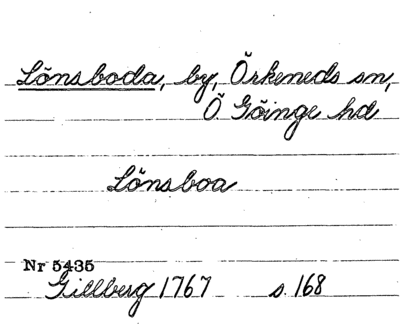 Lönsboda, by, Örkeneds sn,
Ö. Göinge hd
Lönsboa
Nr 5435
Gillberg 1767 s. 168